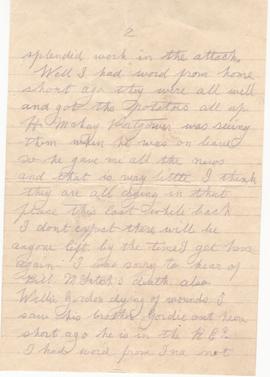 2
splendid work in the attack.
Well I had word from home
short ago they were all well
and got the potatoes all up
H. McKay was seeing
them when he was on leave
so he gave me all the news
and that is very little I think
they are all dying in that
place this last while back
I dont expect there will be
anyone left by the time I get home
again. I was sorry to hear of
Bill McIntosh's death also
Willie Gordon dying of wounds I
saw his brother Gordie out here
short ago he is in the R.E's
I had word from Ina not